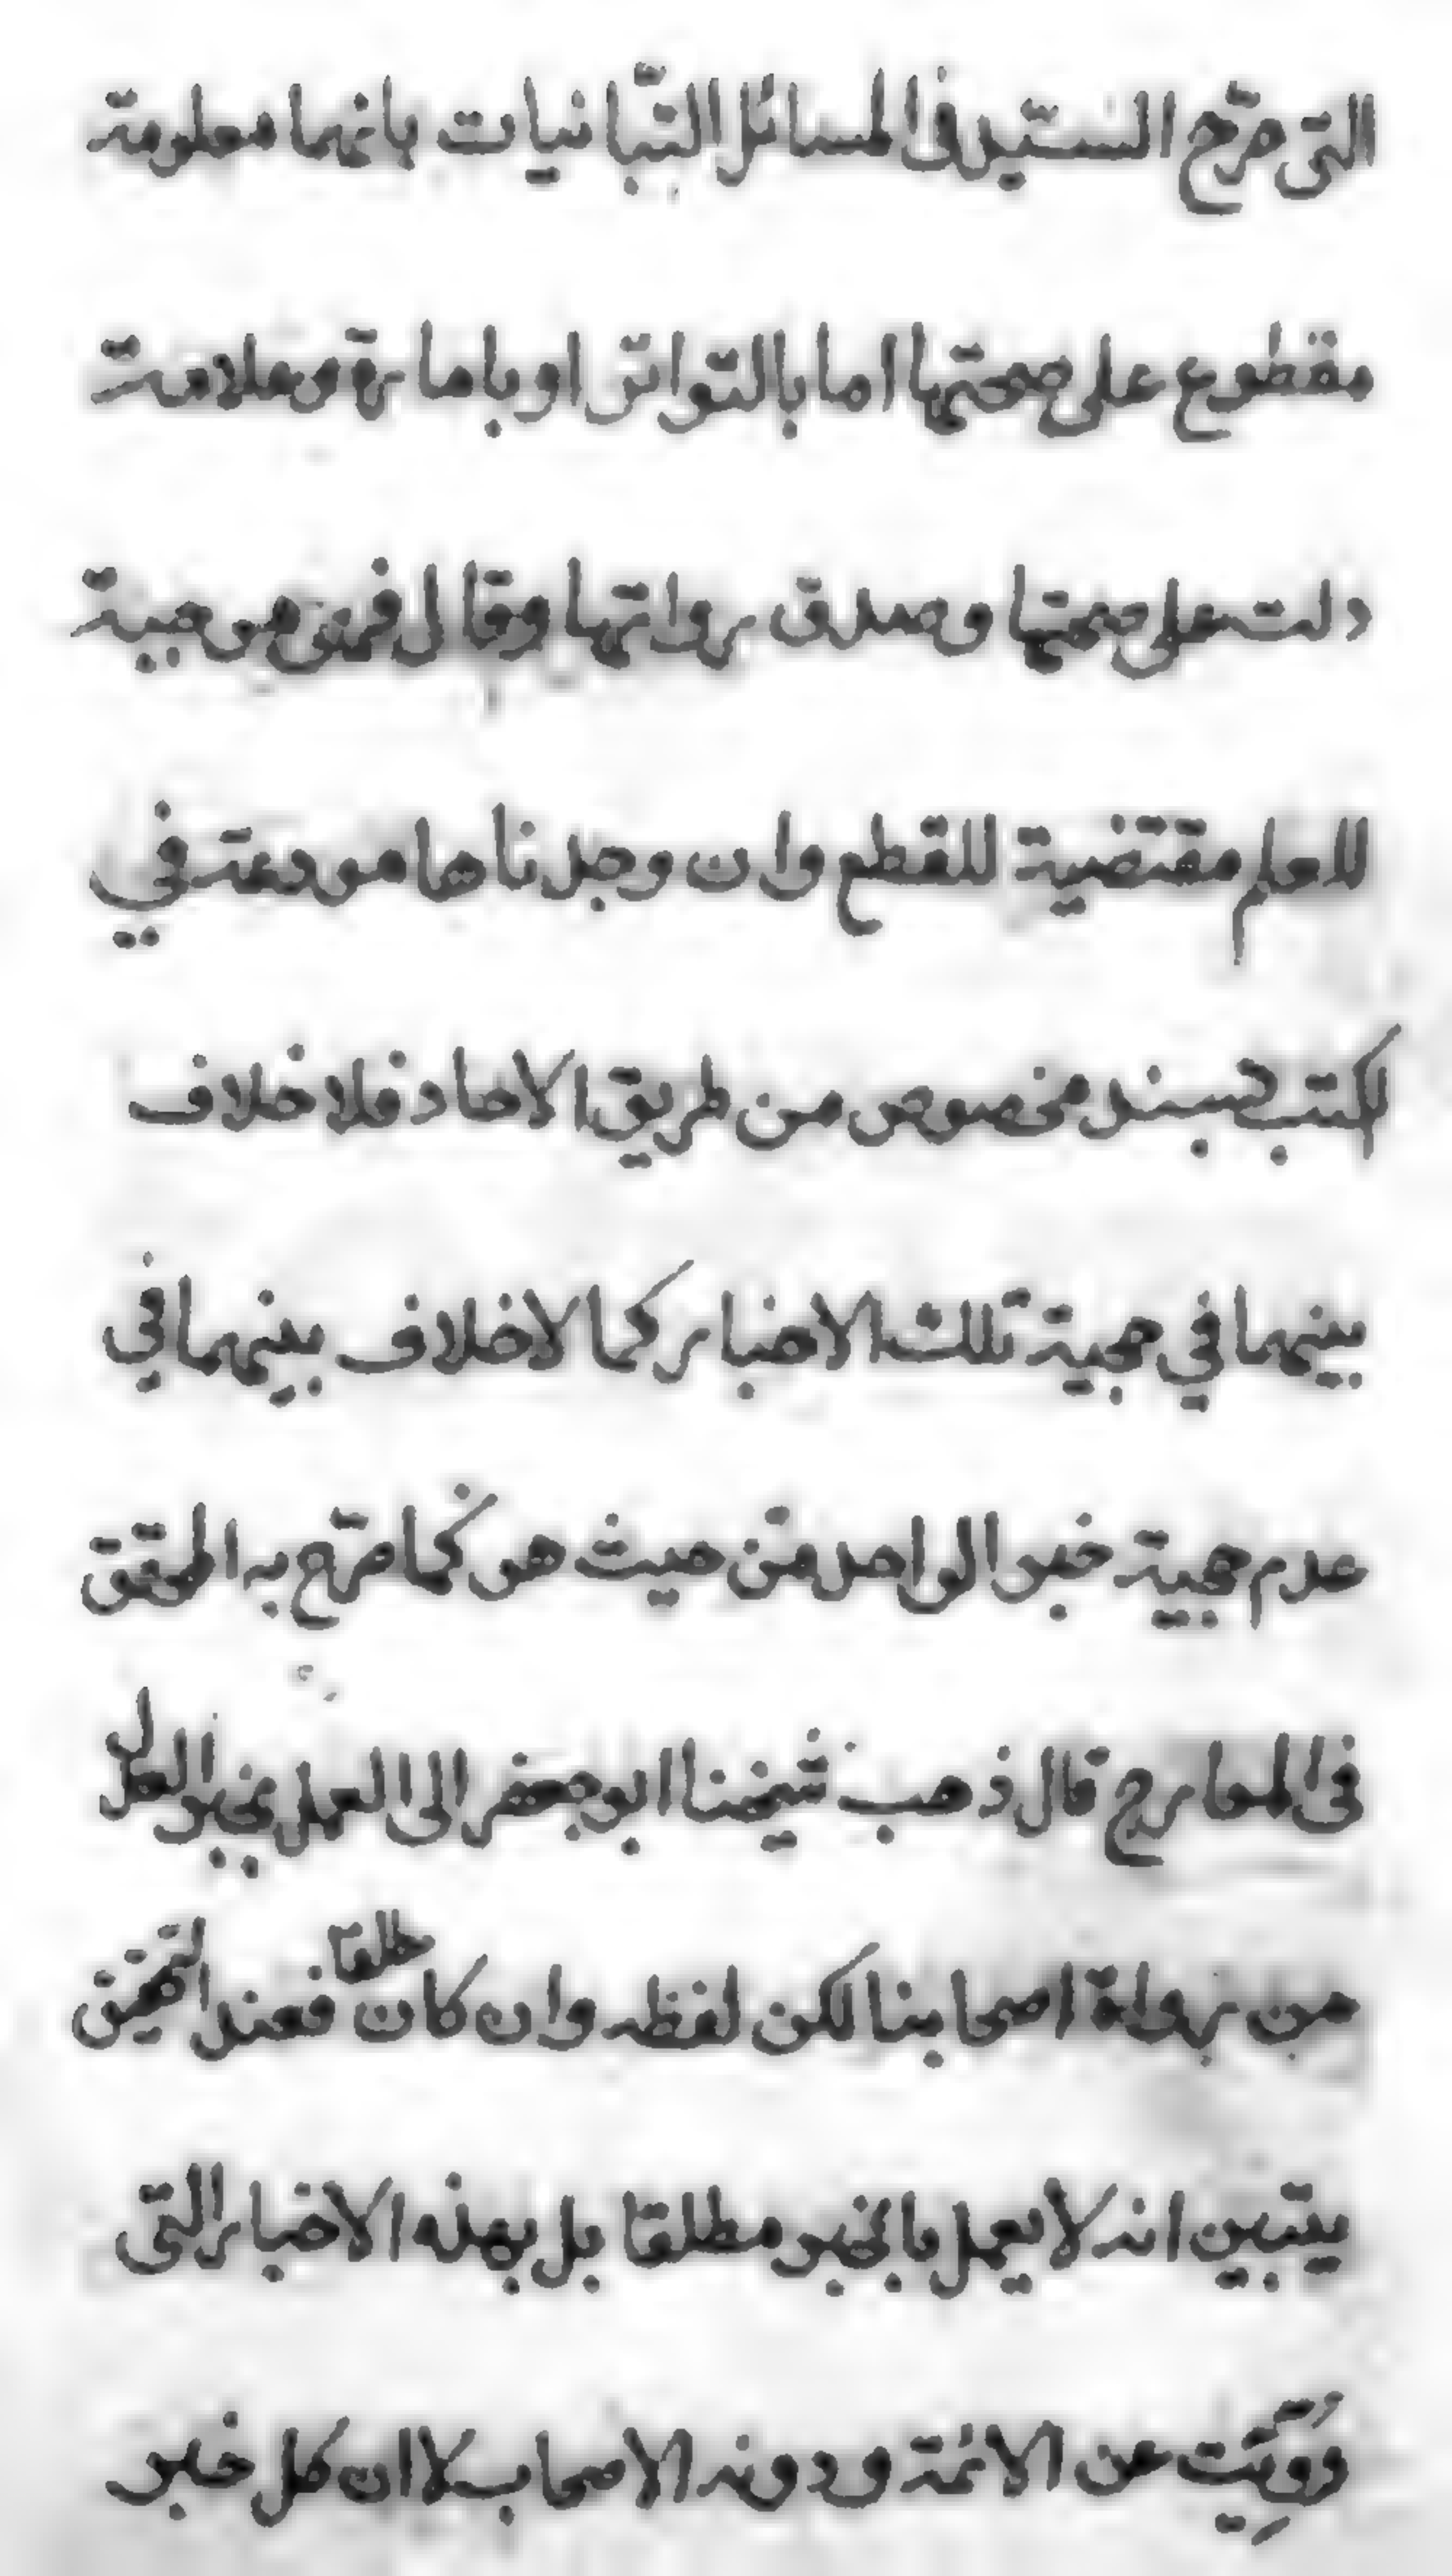 التى صرّح السيّد فى المسائل التّبانيات بانهما معلومة
مقطوع على صحتها اما بالتواتر او بامارة وعلامة
دلت على صحتها وصدق رواتها وقال فهى موجبة
للعلم مقتضية للقطع وان وجدناها مودعة في
لكتب بسند مخصوص من طريق الاحاد فلا خلاف
بينهما في حجية تلك الاخبار كما لا خلاف بينهما في
عدم حجية خبر الواحد من حيث هو كما صرّح به المحقق
فى المعارج قال ذهب شيخنا ابو جعفر الى العمل بخبر العدل
من رواة اصحابنا لكن لفظه وان كان مطلقا فعند التحقيق
يتبين انه لا يعمل بالخبر مطلقا بل بهذه الاخبار التى
رُوِيَت عن الائمة ودونه الاصحاب لا ان كل خبر